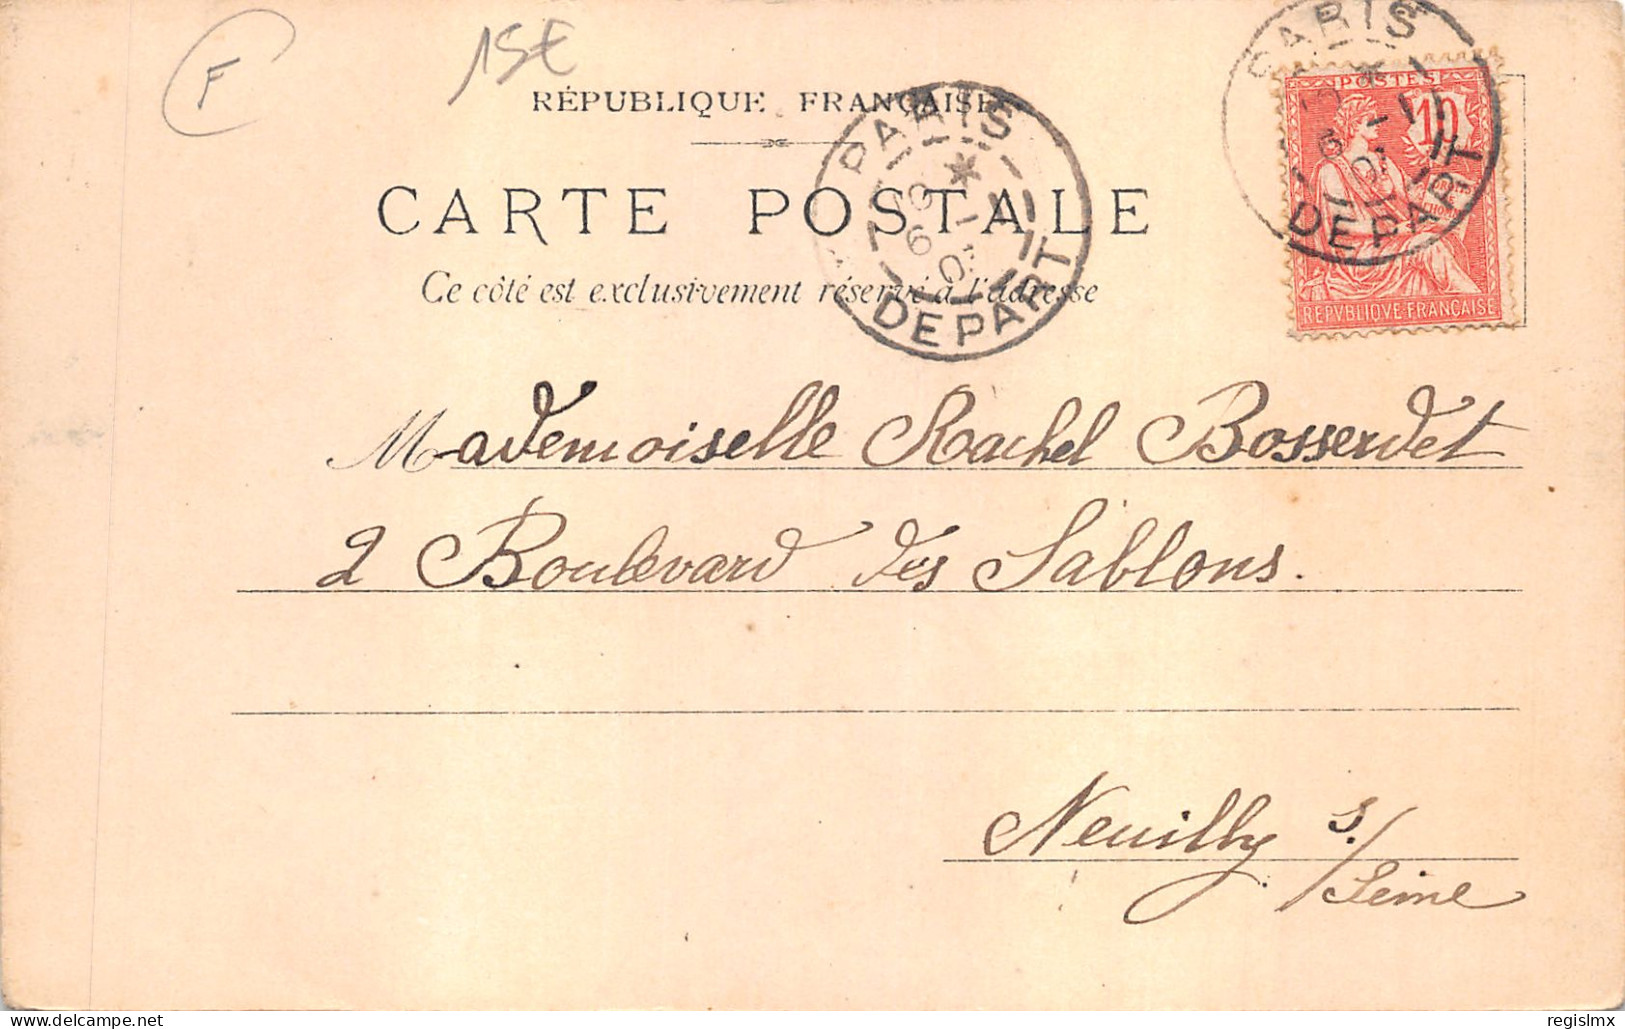 F
15€
RÉPUBLIQUE FRANÇAISE
CARTE POSTALE
Ce côté est exclusivement réservé à l'adresse
PARIS
DEPART
PARIS
DEPART
POSTES
10
REPVBLIQVE FRANÇAISE
Mademoiselle Rachel Bosserdet
2 Boulevard des Sablons.
Neuilly s/
Seine
delcampe.net
regislmx